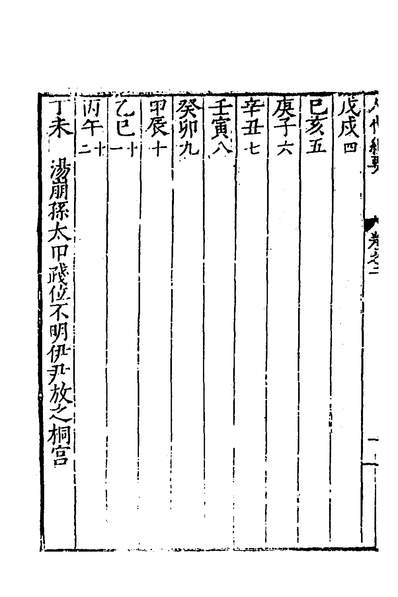 人代紀要 卷之二
戊戌四
己亥五
庚子六
辛丑七
壬寅八
癸卯九
甲辰十
乙巳十一
丙午十二
丁未 湯崩孫太甲踐位不明伊尹放之桐宫